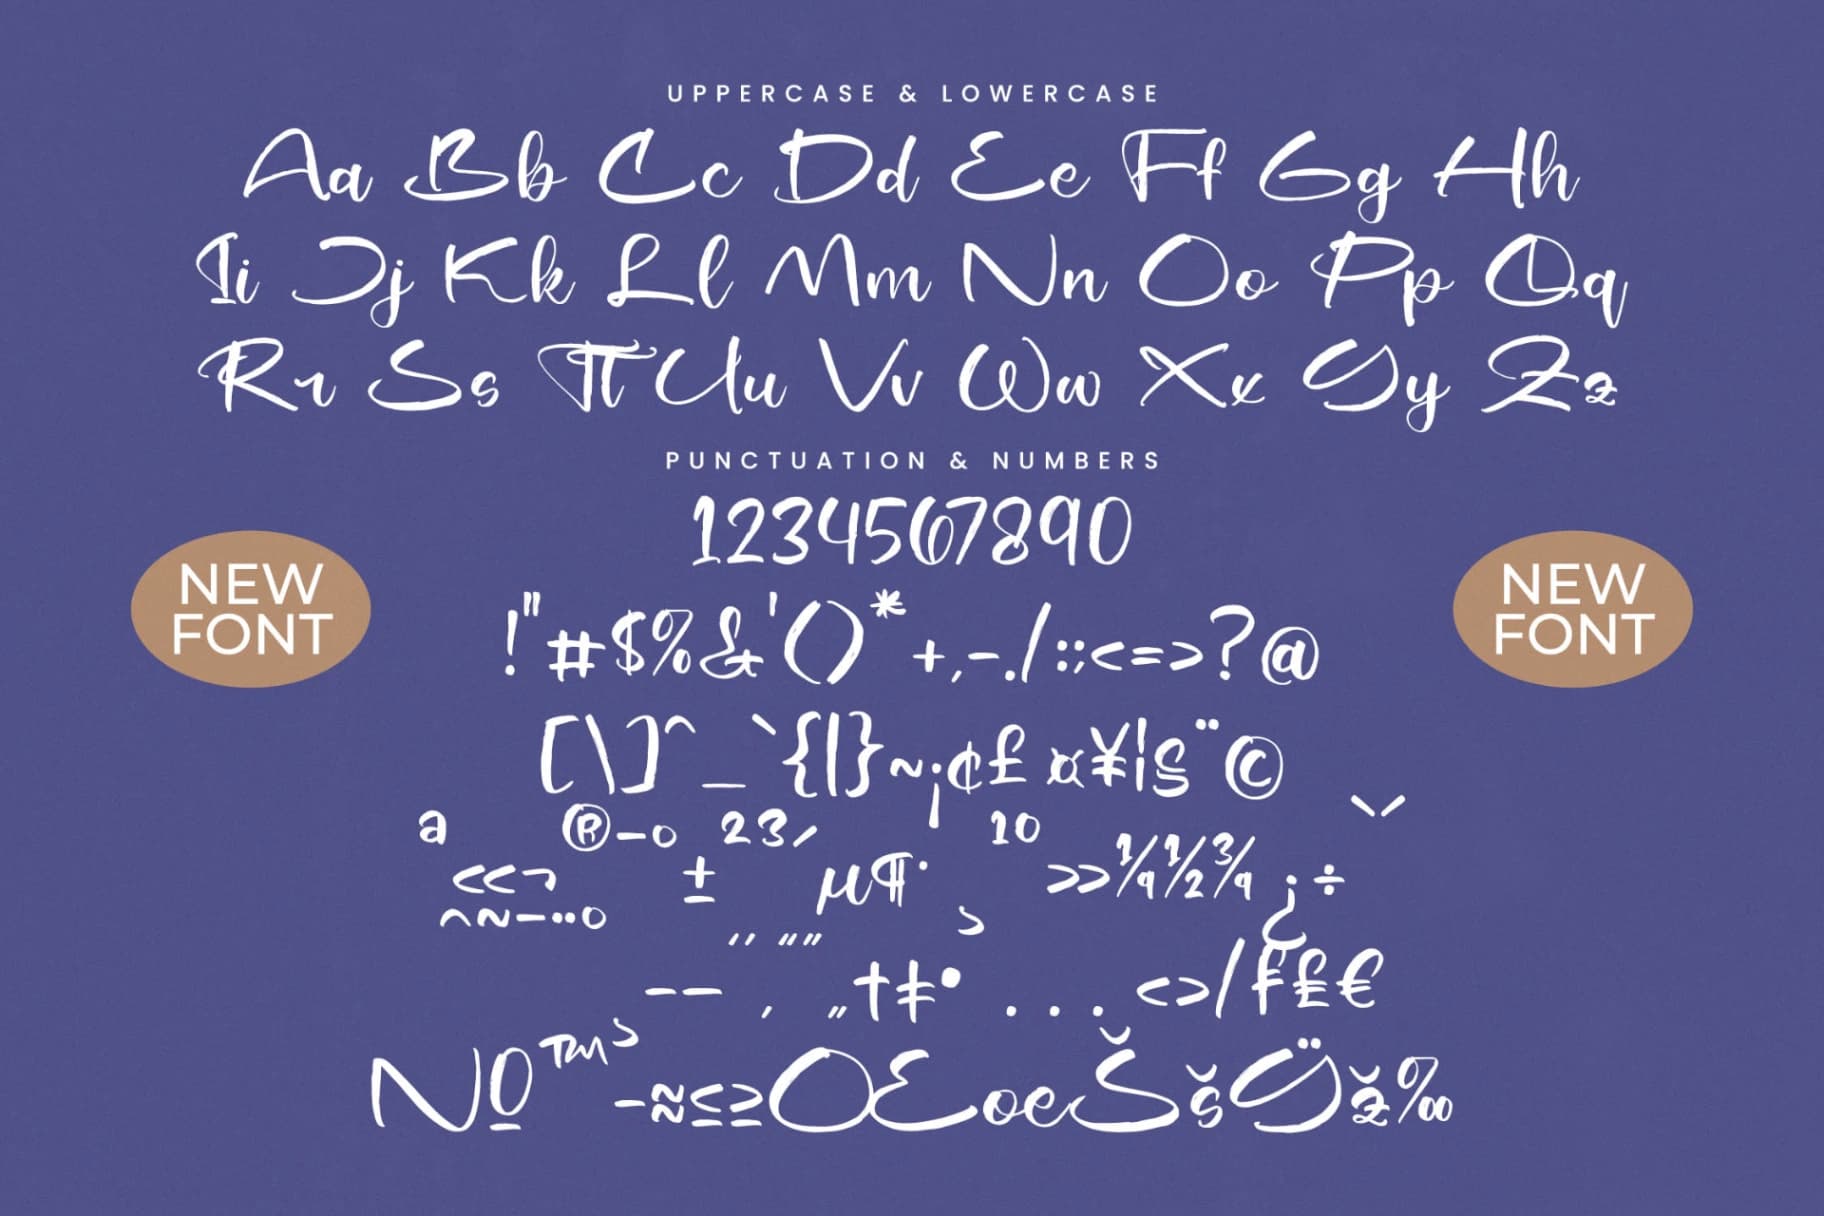 UPPERCASE & LOWERCASE
Aa Bb Cc Dd Ee Ff Gg Hh
Ii Jj Kk Ll Mm Nn Oo Pp Qq
Rr Ss Tt Uu Vv Ww Xx Yy Zz
PUNCTUATION & NUMBERS
1234567890
NEW
FONT
NEW
FONT
!"#$%&'()*+,-./:;<=>?@
[\]^_`{|}~¡¢£¤¥¦§¨©
ª«¬®¯°±²³´µ¶·¸¹º»¼½¾¿÷
ˆ˜–—‚„†‡•…‹›⁄₣₤€
№™-≈≤≥ŒœŠšŸž‰